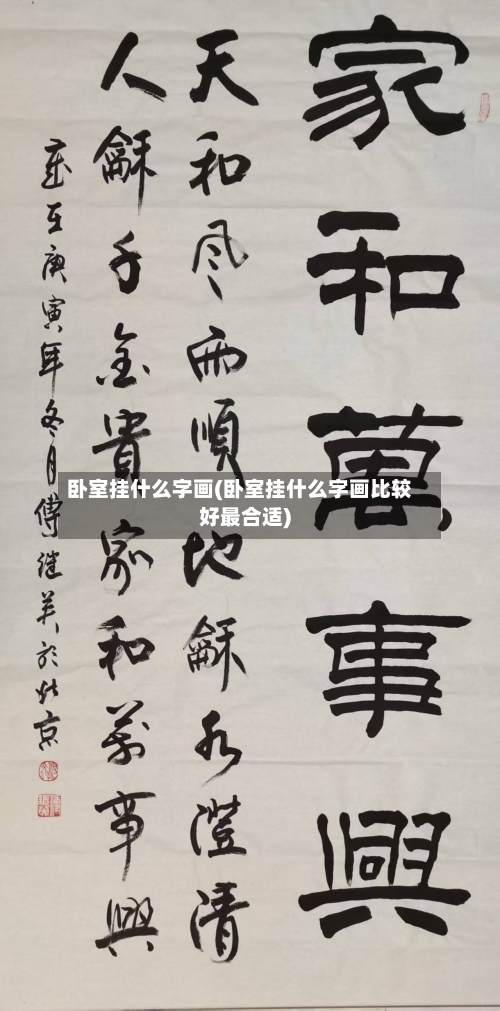 家和萬事興
天和风雨順地龢水澄清
人龢千金貴家和萬事興
歲在庚寅年冬月傅继英於北京
卧室挂什么字画(卧室挂什么字画比较
好最合适)